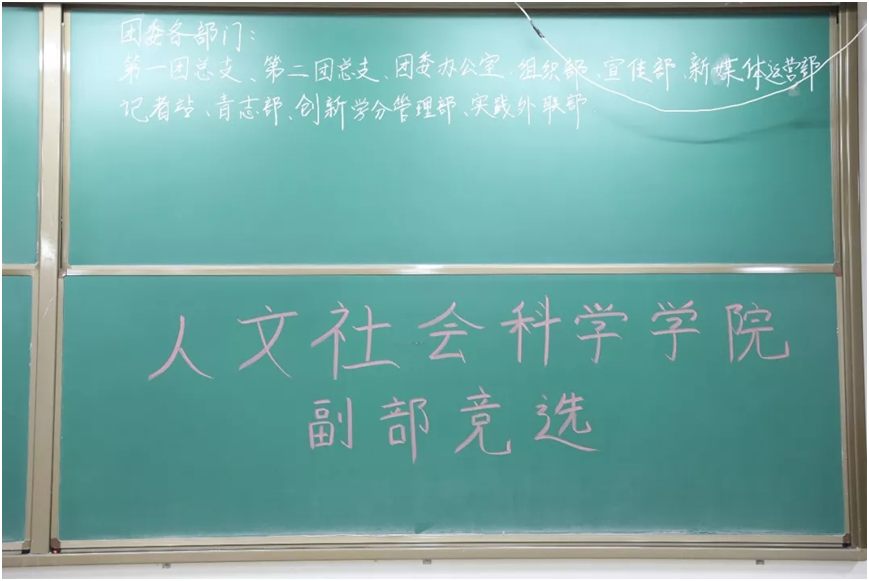 团委各部门：
第一团总支、第二团总支、团委办公室、组织部、宣传部、新媒体运营部
记者站、青志部、创新学分管理部、实践外联部
人文社会科学学院
副部竞选